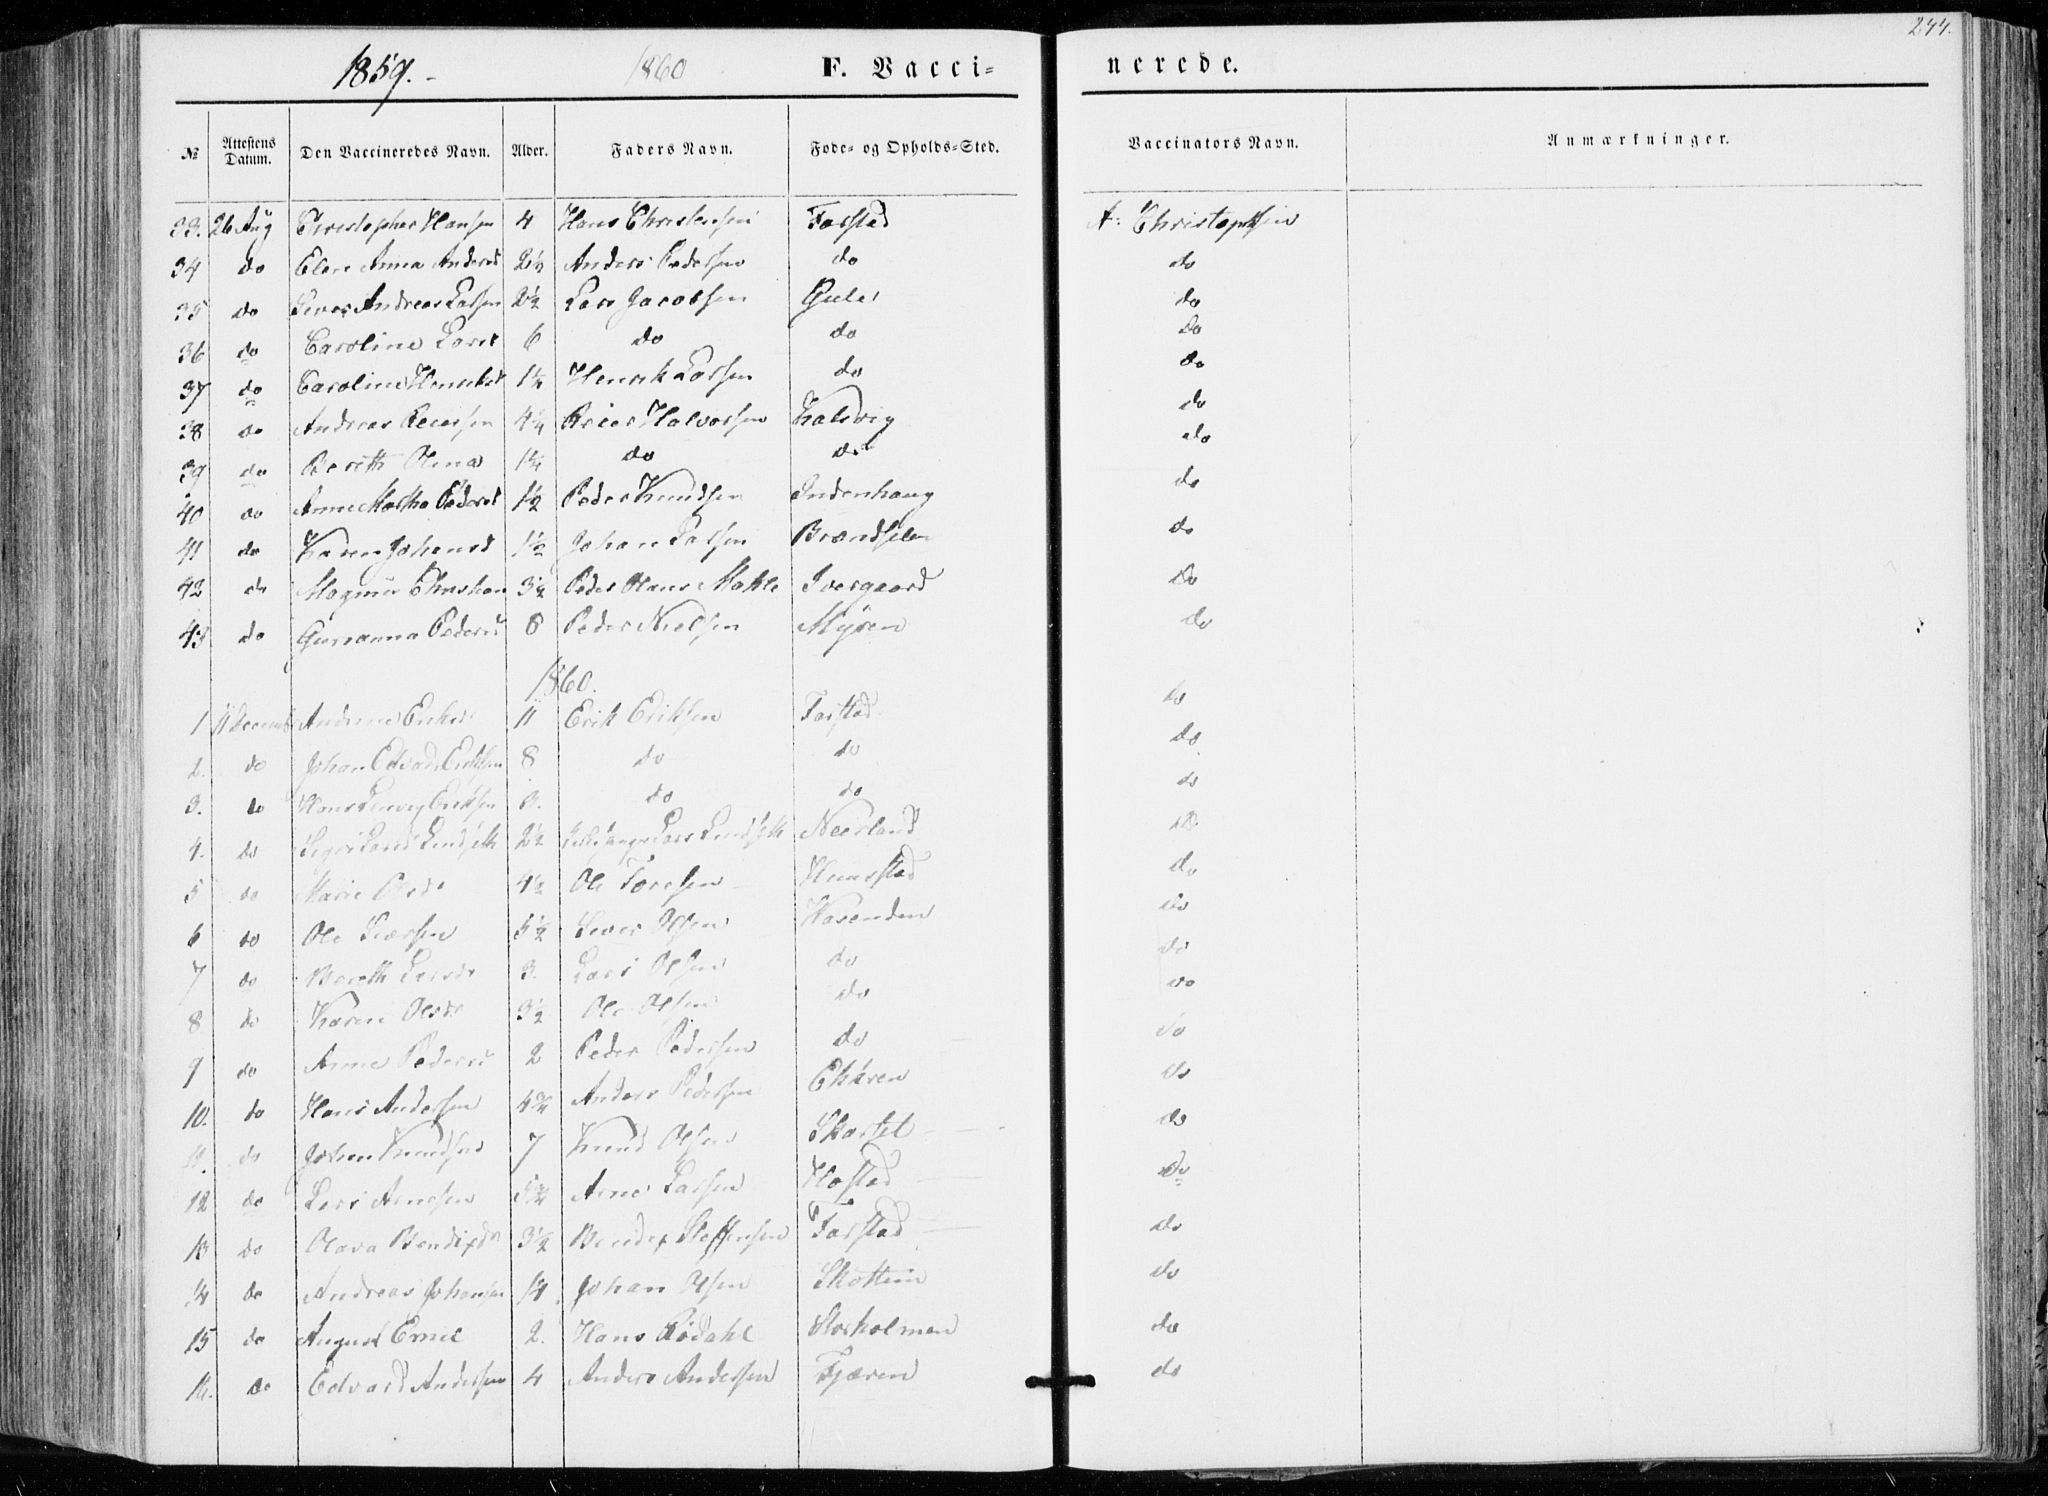 244.
1859.- 1860 F. Vacci= nerede.
№ Attestens Datum. Den Vaccineredes Navn. Alder. Faders Navn. Føde- og Opholds-Sted. Vaccinators Navn. Anmærkninger.
33. 26 Aug Christopher Hansen 4 Hans Christensen Farstad A. Christophsen
34 do Elen Anna Andersd 2½ Anders Pedersen do do
35 do Siver Andreas Larsen 2½ Lars Jacobsen Gule do
36 do Caroline Larsd 6 do do do
37 do Caroline Henriksd 1¼ Henrik Larsen do do
38 do Andreas 4¼ Halvorsen do
39 do Berith Olina 1¼ do do do
40 do Anne Pedersd 1½ Peder Knudsen Indenhaug do
41 do Karen Johansd 1½ Johan Larsen do
42 do Magnus Christian 3½ Peder Hans Ivergaard do
43 do Gurianna Pedersd 8 Peder Nielsen Myren do
1860.
1 11 December Eriksd 11 Erik Eriksen Farstad do
2. do Johan Edvard Eriksen 8 do do do
3. do Hans Eriksen 3. do do do
4. do Larsd 2½ Lars Neerland do
5 do Marie Olsd 4½ Ole Hustad do
6 do Ole Siversen 5½ Siver Olsen Hasenden do
7 do Bereth Larsdr 3. Lars Olsen do do
8 do Karen Olsdr 3½ Ole Olsen do do
9 do Anne Pedersd 2 Peder Pedersen do do
10. do Hans Andersen 4¾ Anders Pedersen do
11. do Johan Knudsen 7 Knud Olsen Skartet do
12 do Lars Arnesen 5¾ Arne Larsen Hostad do
13 do Olava Bendixdr 3½ Bendix Steffensen Farstad do
14 do Andreas Johansen 14 Johan Olsen do
15 do August Emil 2. Hans Rødahl Storholmen do
16. do Edvard Andersen 4 Anders Andersen Fjæren do